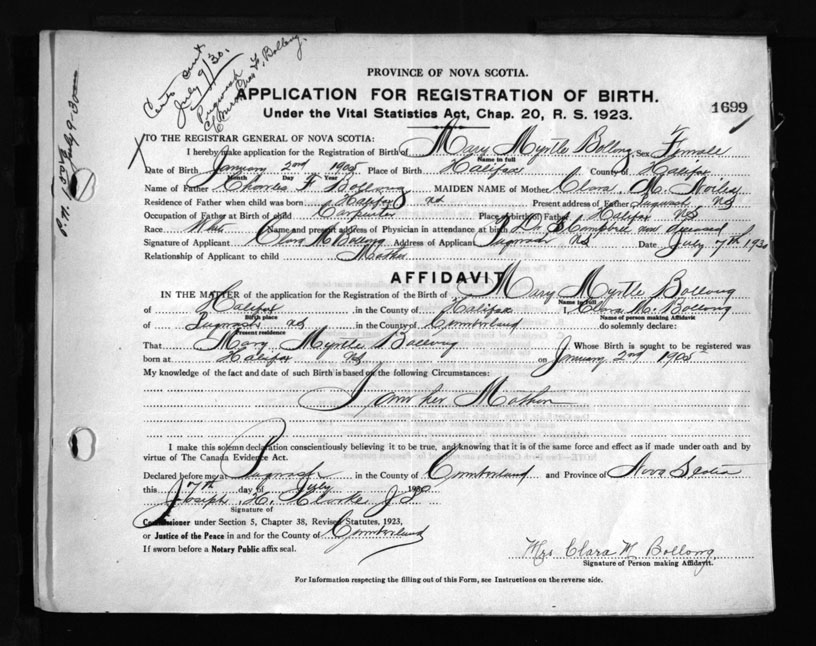 Certs sent
July 9/30.
Pugwash
C/o Mrs Chas F. Bollong.
P.M.
July 9-30
PROVINCE OF NOVA SCOTIA.
APPLICATION FOR REGISTRATION OF BIRTH.
1699
Under the Vital Statistics Act, Chap. 20, R. S. 1923.
TO THE REGISTRAR GENERAL OF NOVA SCOTIA:
I hereby make application for the Registration of Birth of Mary Myrtle Bollong Sex Female
Name in full
Date of Birth January 2nd 1905 Place of Birth Halifax County of Halifax
Month Day Year
Name of Father Charles F Bollong MAIDEN NAME of Mother Clara M.
Residence of Father when child was born Halifax NS Present address of Father Pugwash NS
Occupation of Father at Birth of child Carpenter Place of birth of Father Halifax NS
Race White Name and present address of Physician in attendance at birth Dr now deceased
Signature of Applicant Clara M Bollong Address of Applicant Pugwash NS Date July 7th 1930
Relationship of Applicant to child Mother
AFFIDAVIT
IN THE MATTER of the application for the Registration of the Birth of Mary Myrtle Bollong
Name in full
of Halifax in the County of Halifax I, Clara M. Bollong
Birth place Name of person making Affidavit
of Pugwash NS in the County of Cumberland do solemnly declare:
Present residence
That Mary Myrtle Bollong Whose Birth is sought to be registered was
born at Halifax NS on January 2nd 1905
My knowledge of the fact and date of such Birth is based on the following Circumstances:
I am her Mother
I make this solemn declaration conscientiously believing it to be true, and knowing that it is of the same force and effect as if made under oath and by
virtue of The Canada Evidence Act.
Declared before me at Pugwash in the County of Cumberland and Province of Nova Scotia
this 7th day of July 1930
Joseph H. Clarke J.P.
Signature of
Commissioner under Section 5, Chapter 38, Revised Statutes, 1923,
or Justice of the Peace in and for the County of Cumberland
If sworn before a Notary Public affix seal.
Mrs Clara M Bollong
Signature of Person making Affidavit.
For Information respecting the filling out of this Form, see Instructions on the reverse side.